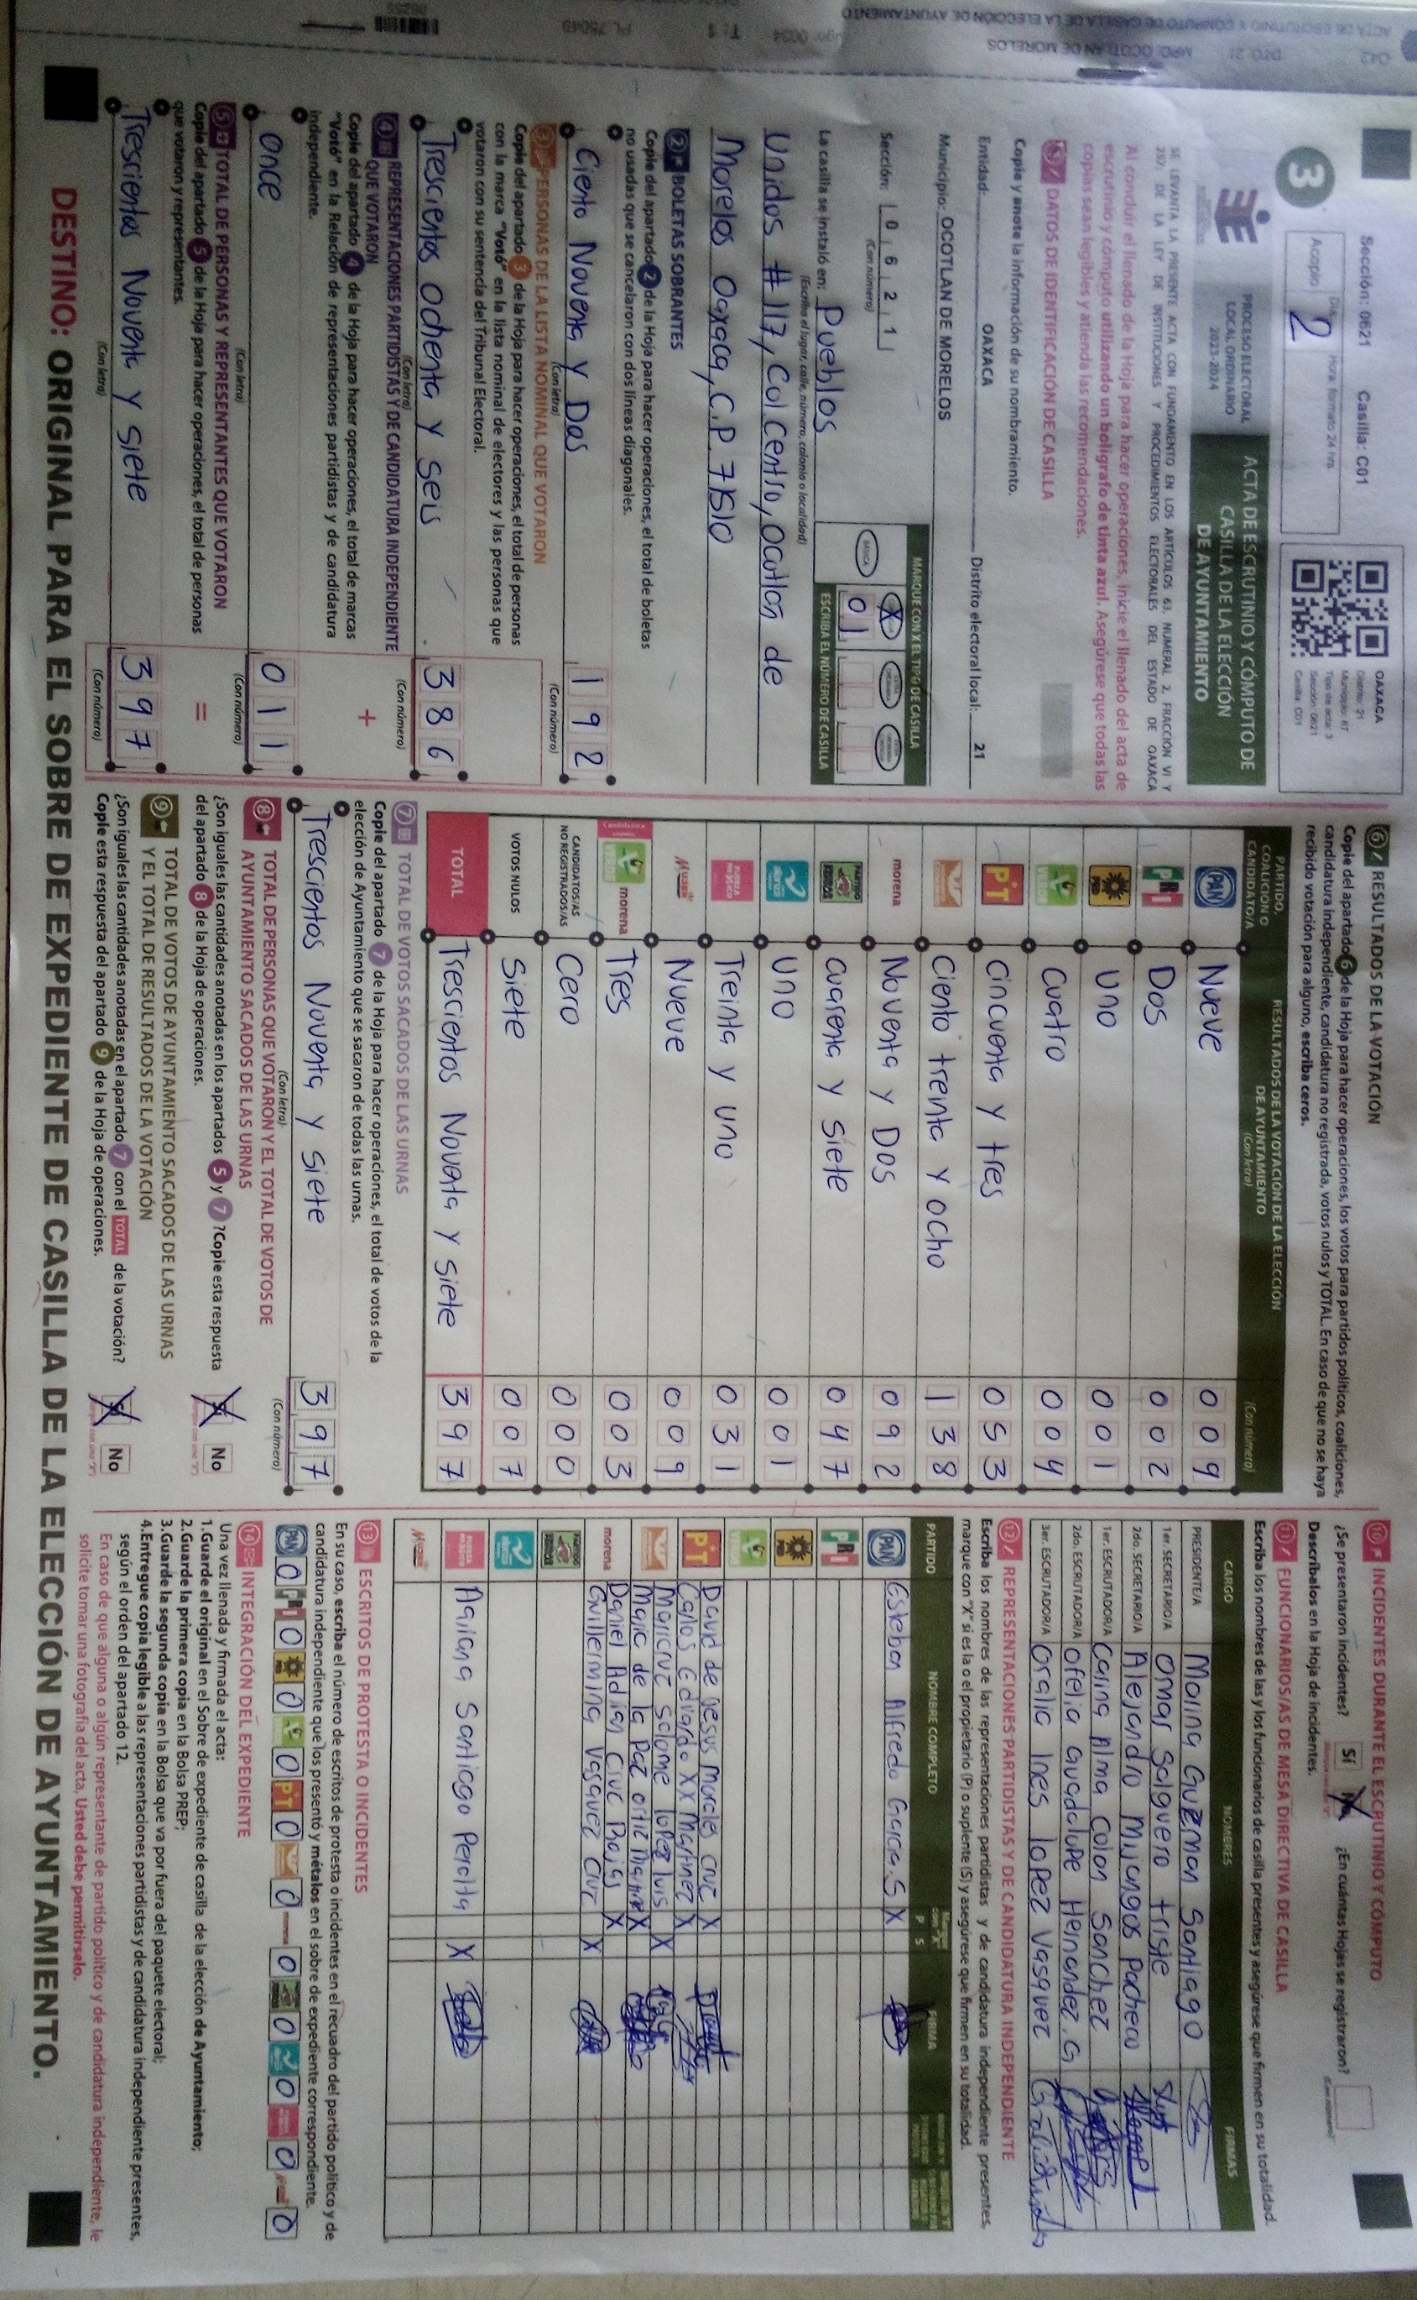 Sección: 0621 Casilla: C01
3
Acopio
Hora: Formato 24 hrs.
2
OAXACA
Distrito: 21
Municipio: 67
Tipo de acta: 3
Sección: 0621
Casilla: C01
PROCESO ELECTORAL
LOCAL ORDINARIO
2023-2024
ACTA DE ESCRUTINIO Y CÓMPUTO DE
CASILLA DE LA ELECCIÓN
DE AYUNTAMIENTO
SE LEVANTA LA PRESENTE ACTA CON FUNDAMENTO EN LOS ARTÍCULOS 63, NUMERAL 2, FRACCIÓN VI Y
DE LA LEY DE INSTITUCIONES Y PROCEDIMIENTOS ELECTORALES DEL ESTADO DE OAXACA
Al concluir el llenado de la Hoja para hacer operaciones, inicie el llenado del acta de
escrutinio y cómputo utilizando un bolígrafo de tinta azul. Asegúrese que todas las
copias sean legibles y atienda las recomendaciones.
DATOS DE IDENTIFICACIÓN DE CASILLA
Copie y anote la información de su nombramiento.
Entidad: OAXACA Distrito electoral local: 21
Municipio: OCOTLAN DE MORELOS
Sección: 0 6 2 1
(Con número)
MARQUE CON X EL TIPO DE CASILLA
BÁSICA X
ESCRIBA EL NÚMERO DE CASILLA
0 1
La casilla se instaló en: Pueblos
(Escriba el lugar, calle, número, colonia o localidad)
Unidos #117, Col centro, Ocotlan de
Morelos Oaxaca, C.P. 71510
2 BOLETAS SOBRANTES
Copie del apartado 2 de la Hoja para hacer operaciones, el total de boletas
no usadas que se cancelaron con dos líneas diagonales.
Ciento Noventa y Dos 1 9 2
(Con letra) (Con número)
3 PERSONAS DE LA LISTA NOMINAL QUE VOTARON
Copie del apartado 3 de la Hoja para hacer operaciones, el total de personas
con la marca "Votó" en la lista nominal de electores y las personas que
votaron con su sentencia del Tribunal Electoral.
Trescientos Ochenta y Seis 3 8 6
(Con letra) (Con número)
4 REPRESENTACIONES PARTIDISTAS Y DE CANDIDATURA INDEPENDIENTE
QUE VOTARON
+
Copie del apartado 4 de la Hoja para hacer operaciones, el total de marcas
"Votó" en la Relación de representaciones partidistas y de candidatura
independiente.
Once 0 1 1
(Con letra) (Con número)
5 TOTAL DE PERSONAS Y REPRESENTANTES QUE VOTARON
=
Copie del apartado 5 de la Hoja para hacer operaciones, el total de personas
que votaron y representantes.
Trescientos Noventa y Siete 3 9 7
(Con letra) (Con número)
6 RESULTADOS DE LA VOTACIÓN
Copie del apartado 6 de la Hoja para hacer operaciones, los votos para partidos políticos, coaliciones,
candidatura independiente, candidatura no registrada, votos nulos y TOTAL. En caso de que no se haya
recibido votación para alguno, escriba ceros.
PARTIDO,
COALICIÓN O
CANDIDATO/A
RESULTADOS DE LA VOTACIÓN DE LA ELECCIÓN
DE AYUNTAMIENTO
(Con letra) (Con número)
PAN Nueve 0 0 9
PRI Dos 0 0 2
PRD Uno 0 0 1
VERDE Cuatro 0 0 4
PT Cincuenta y tres 0 5 3
Ciento trenta y ocho 1 3 8
morena Noventa y Dos 0 9 2
Cuarenta y Siete 0 4 7
Uno 0 0 1
FUERZA POR MÉXICO Treinta y uno 0 3 1
Mujer Nueve 0 0 9
VERDE morena Tres 0 0 3
CANDIDATOS/AS
NO REGISTRADOS/AS Cero 0 0 0
VOTOS NULOS Siete 0 0 7
TOTAL Trescientos Noventa y Siete 3 9 7
7 TOTAL DE VOTOS SACADOS DE LAS URNAS
Copie del apartado 7 de la Hoja para hacer operaciones, el total de votos de la
elección de Ayuntamiento que se sacaron de todas las urnas.
Trescientos Noventa y Siete 3 9 7
(Con letra) (Con número)
8 TOTAL DE PERSONAS QUE VOTARON Y EL TOTAL DE VOTOS DE
AYUNTAMIENTO SACADOS DE LAS URNAS
¿Son iguales las cantidades anotadas en los apartados 5 y 7 ?Copie esta respuesta
del apartado 8 de la Hoja de operaciones.
Sí No
9 TOTAL DE VOTOS DE AYUNTAMIENTO SACADOS DE LAS URNAS
Y EL TOTAL DE RESULTADOS DE LA VOTACIÓN
¿Son iguales las cantidades anotadas en el apartado 7 con el TOTAL de la votación?
Copie esta respuesta del apartado 9 de la Hoja de operaciones.
Sí No
10 INCIDENTES DURANTE EL ESCRUTINIO Y CÓMPUTO
¿Se presentaron incidentes? Sí No ¿En cuántas Hojas se registraron?
Descríbalos en la Hoja de incidentes.
11 FUNCIONARIOS/AS DE MESA DIRECTIVA DE CASILLA
Escriba los nombres de las y los funcionarios de casilla presentes y asegúrese que firmen en su totalidad.
CARGO NOMBRES FIRMAS
PRESIDENTE/A Marina Guzman Santiago
1er. SECRETARIO/A Omar Salguero triste
2do. SECRETARIO/A Alejandro Mijangos Pacheco
1er. ESCRUTADOR/A Carina Alma Colon Sanchez
2do. ESCRUTADOR/A Ofelia Guadalupe Hernandez. G
3er. ESCRUTADOR/A Oralia Ines lopez Vasquez
12 REPRESENTACIONES PARTIDISTAS Y DE CANDIDATURA INDEPENDIENTE
Escriba los nombres de las representaciones partidistas y de candidatura independiente presentes,
marque con "X" si es la o el propietario (P) o suplente (S) y asegúrese que firmen en su totalidad.
PARTIDO NOMBRE COMPLETO P S FIRMA
PAN Esteban Alfredo Garcia. S X
PRI
PRD
VERDE
David de Jesus Morales Cruz X
PT Carlos Eduardo XX Martinez X
Maricruz Salome lopez luis X
Maria de la Paz ortiz X
Daniel Adrian Cruz Rojas X
morena Guillermina Vasquez Cruz X
FUERZA MÉXICO Aquiana Santiago Peralta X
Mujer
13 ESCRITOS DE PROTESTA O INCIDENTES
En su caso, escriba el número de escritos de protesta o incidentes en el recuadro del partido político y de
candidatura independiente que los presentó y métalos en el sobre de expediente correspondiente.
PAN 0 PRI 0 0 0 PT 0 0 0 0 0 0 0
14 INTEGRACIÓN DEL EXPEDIENTE
Una vez llenada y firmada el acta:
1.Guarde el original en el Sobre de expediente de casilla de la elección de Ayuntamiento;
2.Guarde la primera copia en la Bolsa PREP;
3.Guarde la segunda copia en la Bolsa que va por fuera del paquete electoral;
4.Entregue copia legible a las representaciones partidistas y de candidatura independiente presentes,
según el orden del apartado 12.
En caso de que alguna o algún representante de partido político y de candidatura independiente, le
solicite tomar una fotografía del acta, Usted debe permitírselo.
DESTINO: ORIGINAL PARA EL SOBRE DE EXPEDIENTE DE CASILLA DE LA ELECCIÓN DE AYUNTAMIENTO.
042 DTO: 21 MPO: OCOTLAN DE MORELOS
ACTA DE ESCRUTINIO Y CÓMPUTO DE CASILLA DE LA ELECCIÓN DE AYUNTAMIENTO